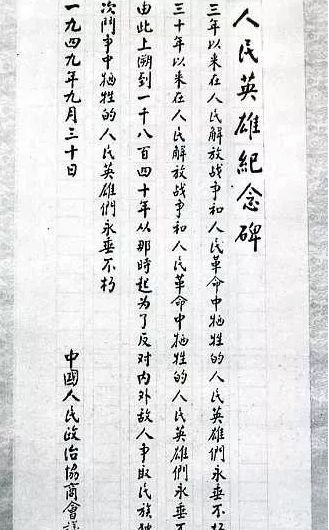 人民英雄紀念碑
三年以来在人民解放战争和人民革命中牺牲的人民英雄們永垂不朽
三十年以来在人民解放战争和人民革命中牺牲的人民英雄們永垂不
由此上溯到一千八百四十年从那時起为了反对内外敌人争取民族独
次鬥争中牺牲的人民英雄們永垂不朽
一九四九年九月三十日
中國人民政治協商會議